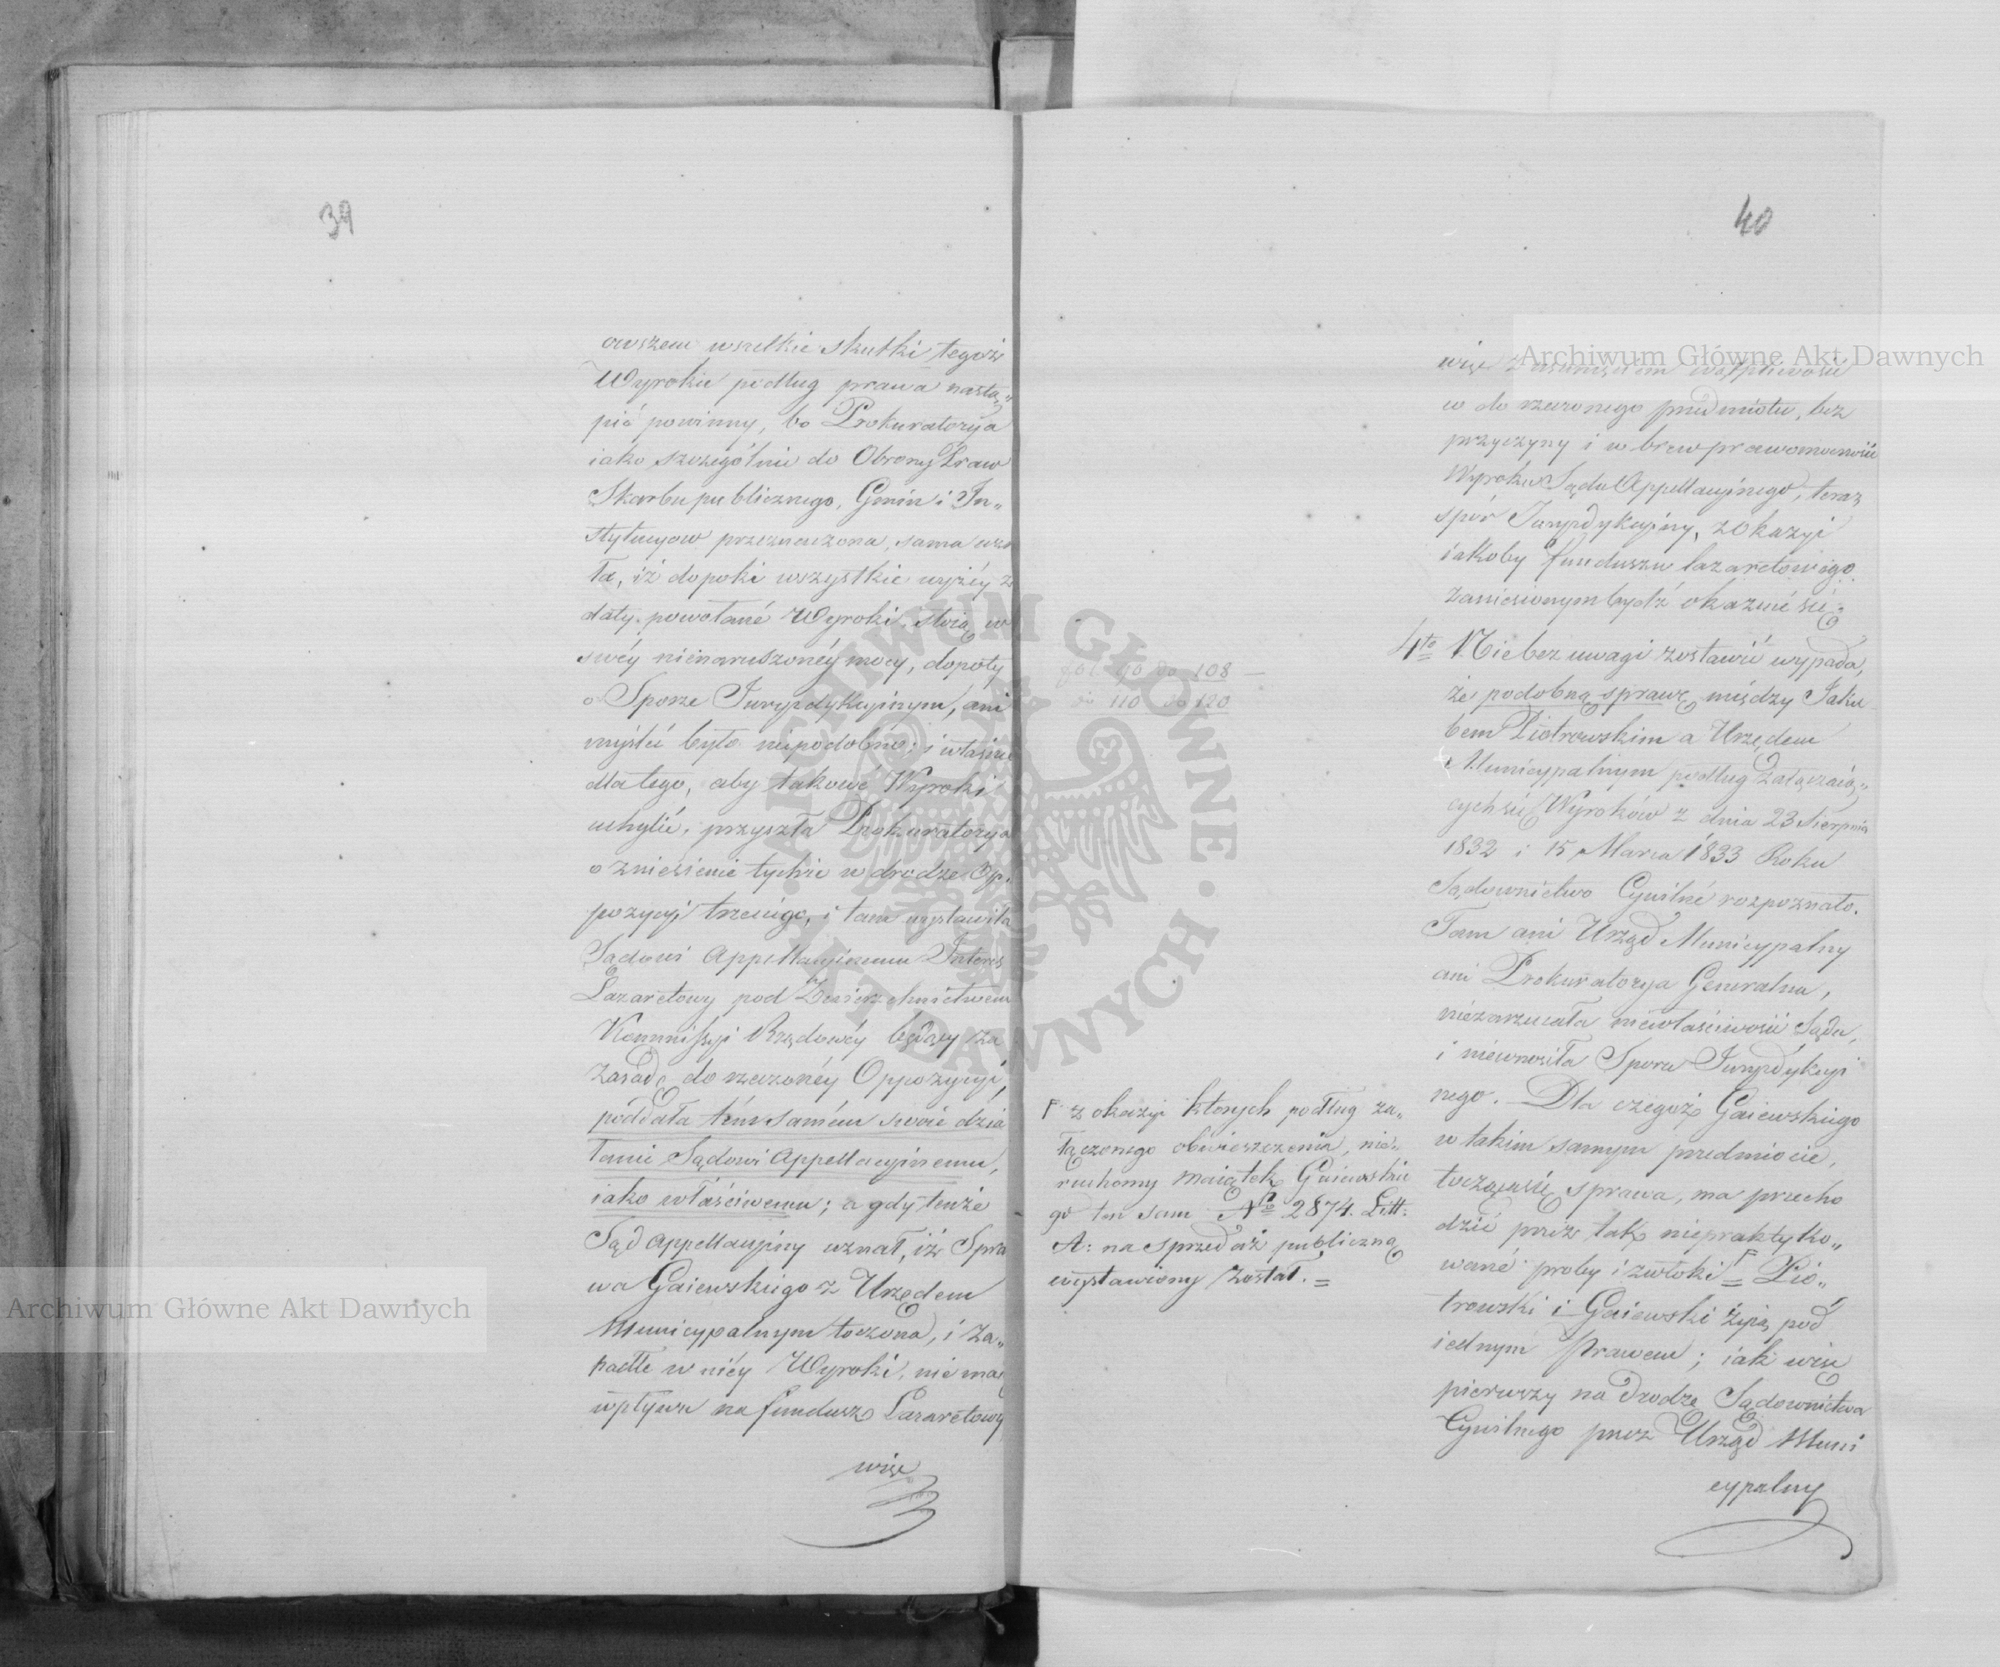 39
owszem wszelkie skutki tegoż
Wyroku podług prawa nastą„
pić powinny, bo Prokuratorya
iako szczególnie do Obrony Praw
Skarbu publicznego, Gmin i In„
stytucyow przeznaczona, sama
ła, iż dopoki wszystkie wyżéy z
daty powołané Wyroki, stoią w
swéy nienaruszonéy mocy, dopoty
o Sporze Juryzdykcyinym, ani
myśleć było niepodobno; i właśnie
dla tego, aby takowe Wyroki
uchylić, przyszła Prokuratorya
o zniesienie tychże w drodze Op„
pozycyi trzeciego, i tam wystawiła
Sądowi Appellacyinemu Interes
Lazaretowy pod Zwierzchnictwem
Kommissyi Rządowéy będący za
zasadę do rzeczonéy Oppozycyi,
poddała tém samém swoie dzia
łanie Sądowi Appellacyinemu,
iako właściwemu; a gdy tenże
Sąd Appellacyiny uznał, iż Spra
wa Gaiewskiego z Urzędem
Municypalnym toczona, i za„
padłe w niéy Wyroki, nie maią
wpływu na fundusz Lazaretowy
więc
40
więc z usunięciem wątpliwości
w do rzeczonego przedmiotu, bez
przyczyny i w brew prawomocności
Wyroku Sądu Appellacyinego, teraz
spór Juryzdykcyiny, z okazyi
iakoby funduszu lazaretowego
zaniesionym bydź okazuie się.
4to Nie bez uwagi zostawić wypada,
że podobną sprawę między Jaku
bem Piotrowskim a Urzędem
Municypalnym podług załączaią„
cych się Wyroków z dnia 23 Sierpnia
1832 i 15 Marca 1833 Roku
Sądownictwo Cywilné rozpoznało.
Tam ani Urząd Municypalny
ani Prokuratorya Generalna,
niezarzucała niewłaściwości Sądu,
i niewnosiła Sporu Juryzdykcyi
nego. Dla czegoż Gaiewskiego
w takim samym przedmiocie,
tocząca się sprawa, ma przecho
dzić przez tak niepraktyko„
wané proby i zwłoki F = Pio„
trowski i Gaiewski żyią pod
iednym Prawem; iak więc
pierwszy na drodze Sądownictwa
Cywilnego przez Urząd Muni
cypalny
fol. 90 do 108
do 110 do 120
F z okazyi których podług za„
łączonego obwieszczenia, nie„
ruchomy maiątek Gaiewskie
go ten sam No 2874. Litt:
A: na sprzedaż publiczną
wystawiony został. =
Archiwum Główne Akt Dawnych
Archiwum Główne Akt Dawnych
ARCHIWUM GŁÓWNE AKT DAWNYCH